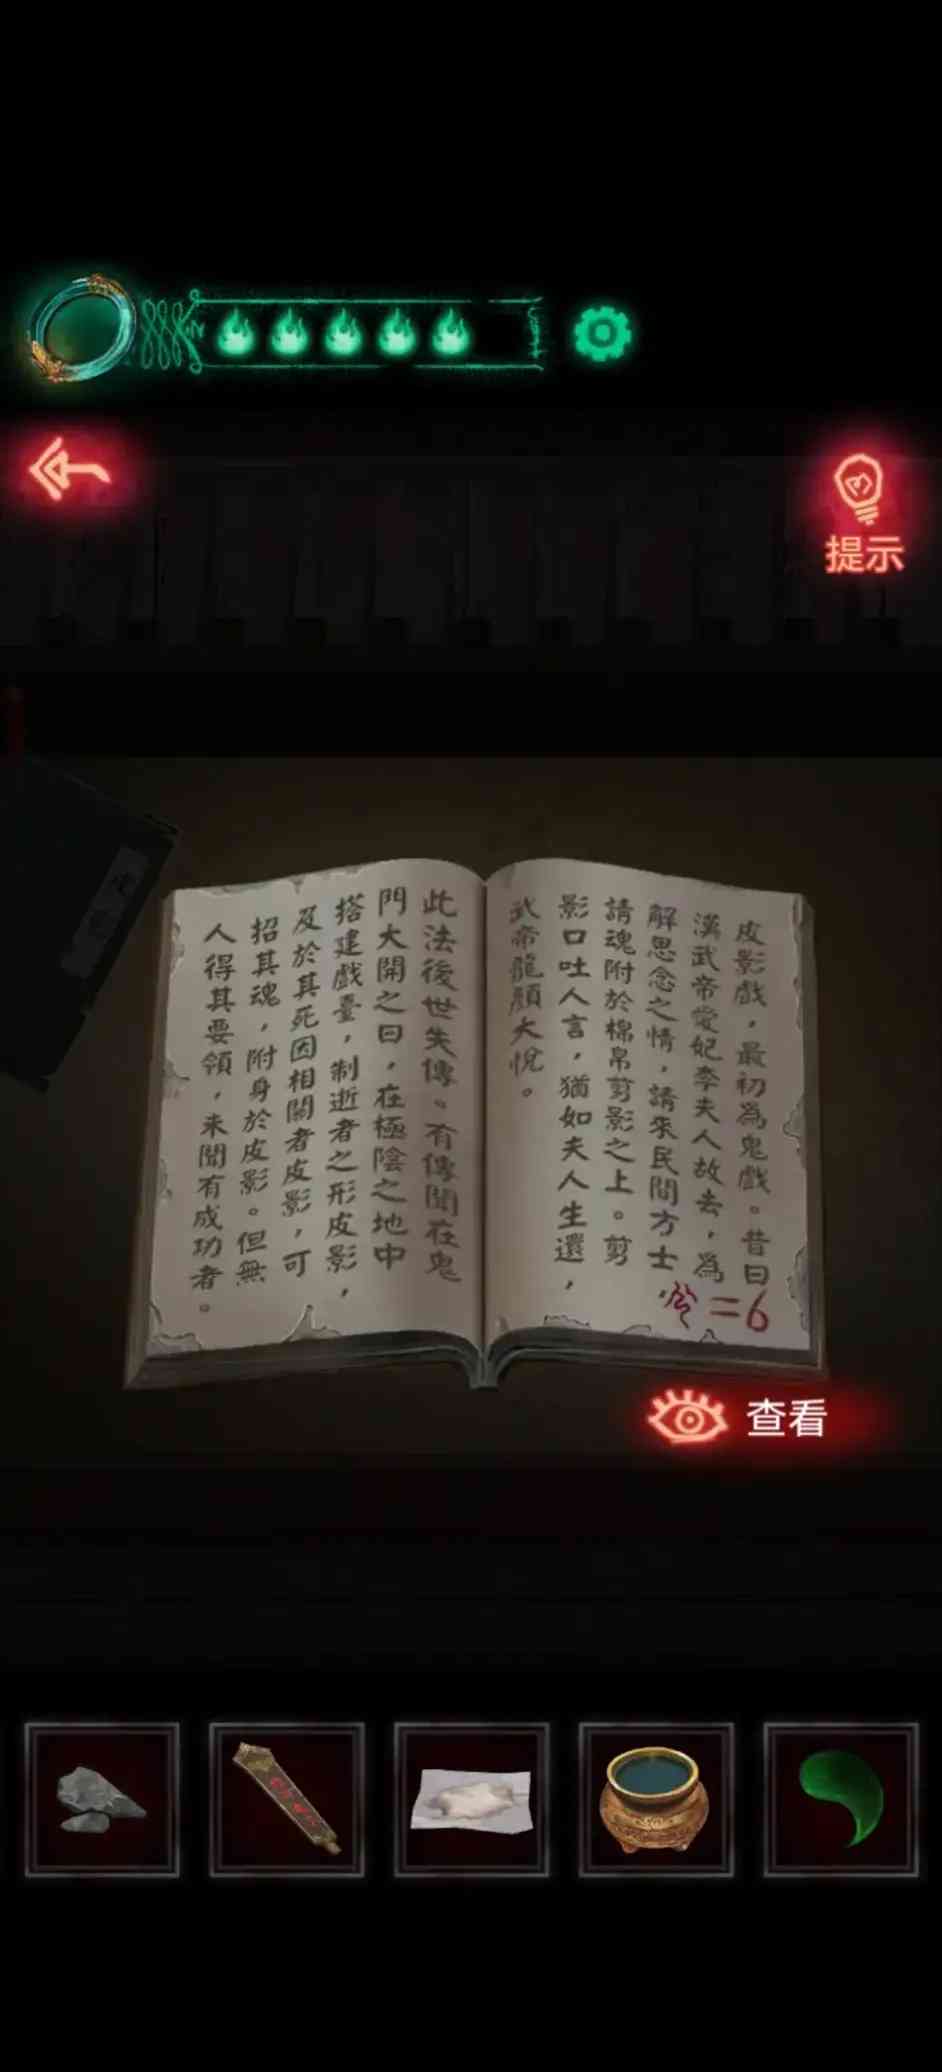 提示
皮影戲，最初為鬼戲。昔日
漢武帝愛妃李夫人故去，為
解思念之情，請來民間方士，
請魂附於棉帛剪影之上。剪
影口吐人言，猶如夫人生還，
武帝龍顏大悅。
此法後世失傳。有傳聞在鬼
門大開之日，在極陰之地中
搭建戲臺，制逝者之形皮影，
及於其死因相關者皮影，可
招其魂，附身於皮影。但無
人得其要領，未聞有成功者。
=6
查看